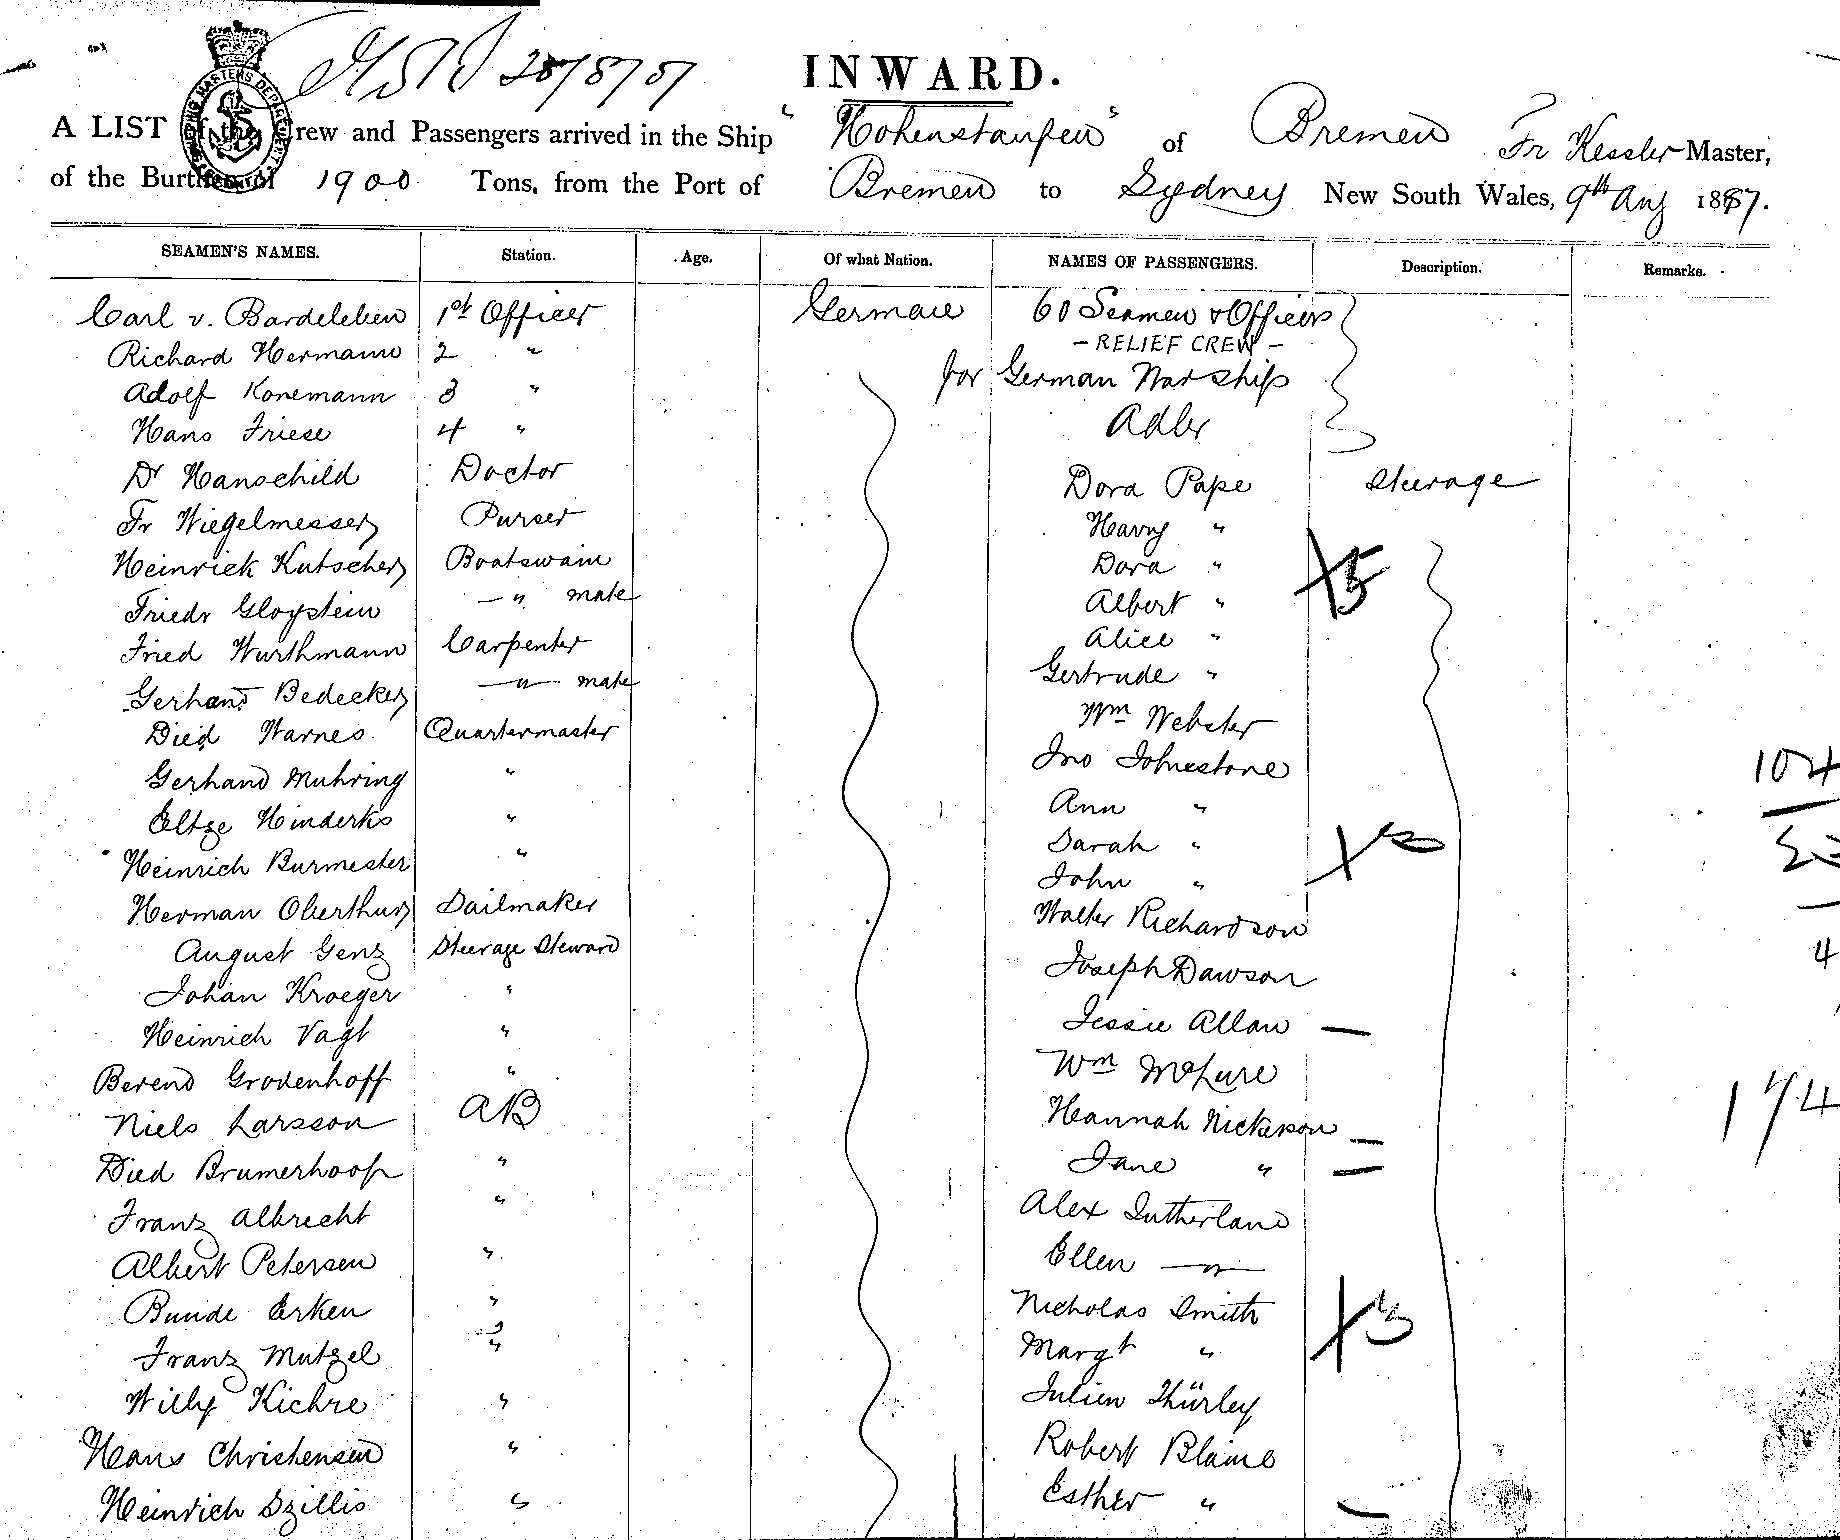 INWARD.
A LIST of the Crew and Passengers arrived in the Ship "Hohenstaufen" of Bremen Fr Kessler Master,
of the Burthen of 1900 Tons, from the Port of Bremen to Sydney New South Wales, 9th Aug 1887.
SEAMEN'S NAMES. Station. Age. Of what Nation. NAMES OF PASSENGERS. Description. Remarks.
Carl v. Bardeleben 1st Officer German 60 Seamen & Officers
- RELIEF CREW -
Richard Hermann 2 "
for German Warship
Adolf Konemann 3 "
Hans Friese 4 " Adler
Dr Hanschild Doctor Dora Pape Steerage
Fr Wiegelmesser Purser Harry "
Heinrick Kutscher Boatswain Dora " X5
Friedr Gloystein — " mate Albert "
Fried Wurthmann Carpenter Alice "
Gerhard Bedecker — " — mate Gertrude "
Died Warnes Quartermaster Wm Webster
Gerhard Muhring " Jno Johnestone 104
Eltze Hinderks " Ann "
Heinrich Burmester " Sarah "
John "
Herman Oberthur Sailmaker Walter Richardson
August Genz Steerage Steward Joseph Dawson 4
Johan Kroeger "
Heinrich Vagt " Jessie Allan —
Berend Grovenhoff " Wm McLure
Niels Larsson AB Hannah Nickerson — 174
Died Brumerhoop " Jane " —
Franz Albrecht " Alex Sutherland
Albert Petersen " Ellen — " —
Bunde Erken " Nicholas Smith X3
Franz Mutzel " Margt "
Willy Kichre " Julien Thürley
Hans Christensen " Robert Blaine
Heinrich Szillis " Esther " —